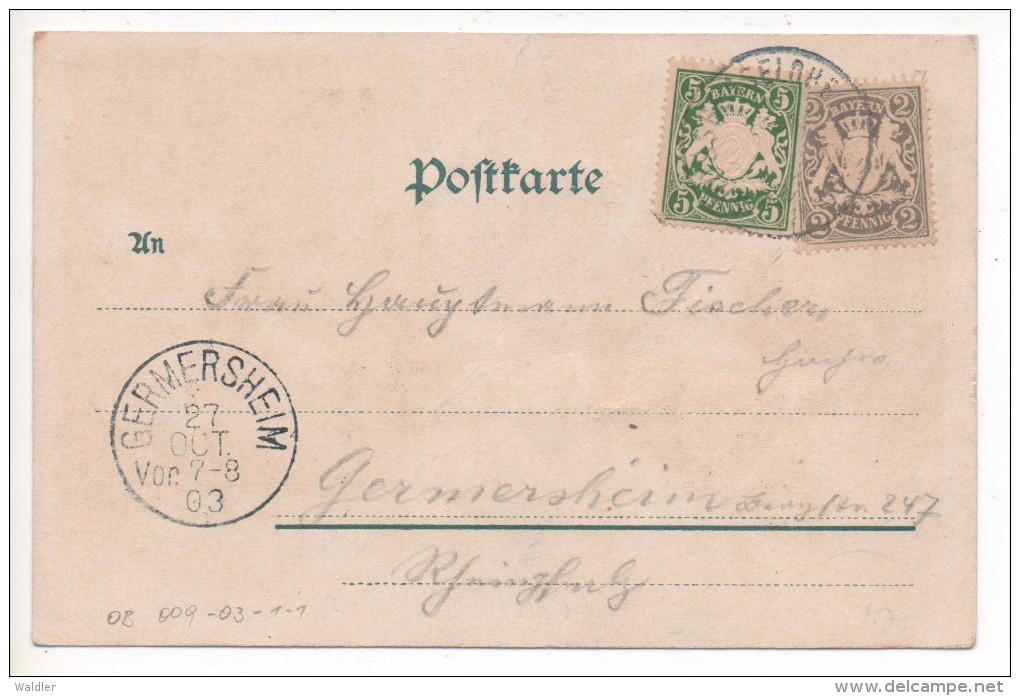 5 BAYERN 5
5 PFENNIG 5
2 BAYERN 2
2 PFENNIG 2
Postkarte
An
Frau Hauptmann Fischer,
GERMERSHEIM
27
OCT.
Vor. 7-8
03
Germersheim 247
Rheinpfalz
OB 009-03-1-1
Waldler
delcampe.net